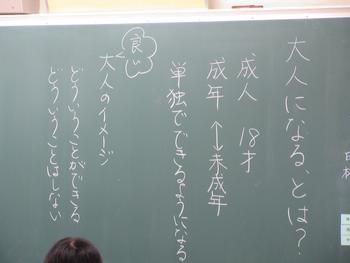 大人になる、とは？
成人 18才
成年 ↔ 未成年
単独でできるようになる
良い
大人のイメージ
どういうことができる
どういうことはしない